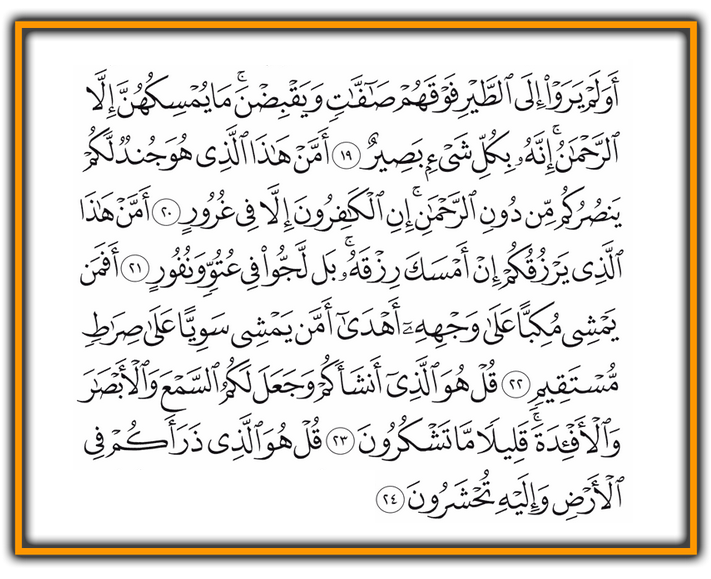 أَوَلَمْ يَرَوْا۟ إِلَى ٱلطَّيْرِ فَوْقَهُمْ صَـٰٓفَّـٰتٍ وَيَقْبِضْنَ ۚ مَا يُمْسِكُهُنَّ إِلَّا
ٱلرَّحْمَـٰنُ ۚ إِنَّهُۥ بِكُلِّ شَىْءٍۭ بَصِيرٌ ١٩ أَمَّنْ هَـٰذَا ٱلَّذِى هُوَ جُندٌ لَّكُمْ
يَنصُرُكُم مِّن دُونِ ٱلرَّحْمَـٰنِ ۚ إِنِ ٱلْكَـٰفِرُونَ إِلَّا فِى غُرُورٍ ٢٠ أَمَّنْ هَـٰذَا
ٱلَّذِى يَرْزُقُكُمْ إِنْ أَمْسَكَ رِزْقَهُۥ ۚ بَل لَّجُّوا۟ فِى عُتُوٍّ وَنُفُورٍ ٢١ أَفَمَن
يَمْشِى مُكِبًّا عَلَىٰ وَجْهِهِۦٓ أَهْدَىٰٓ أَمَّن يَمْشِى سَوِيًّا عَلَىٰ صِرَٰطٍ
مُّسْتَقِيمٍ ٢٢ قُلْ هُوَ ٱلَّذِىٓ أَنشَأَكُمْ وَجَعَلَ لَكُمُ ٱلسَّمْعَ وَٱلْأَبْصَـٰرَ
وَٱلْأَفْـِٔدَةَ ۖ قَلِيلًا مَّا تَشْكُرُونَ ٢٣ قُلْ هُوَ ٱلَّذِى ذَرَأَكُمْ فِى
ٱلْأَرْضِ وَإِلَيْهِ تُحْشَرُونَ ٢٤